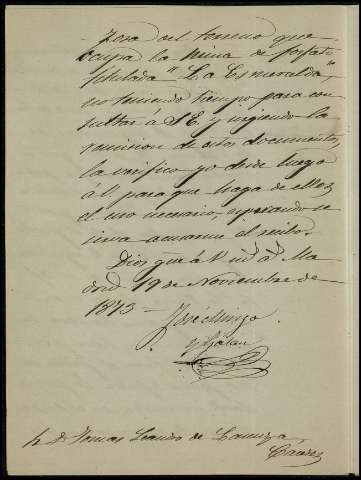 -pesa del terreno que
ocupa la mina de fosfato
titulada "La Esmeralda,"
no teniendo tiempo para con
sultar a S.E. y urgiendo la
remision de estos documentos,
la verifico yo desde luego
á V. para que haga de ellos
el uso necesario, esperando se
sirva acusarme el recibo.
Dios gue á V. ms. as. Ma
drid 19 de Noviembre de
1873 —
José Mingo
y Galan
Sr. Dn. Tomas Leandro de
Caceres